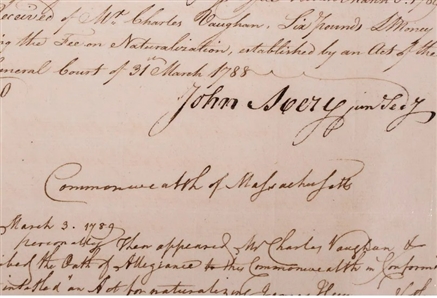 Received of Mr. Charles Vaughan. Six pounds L Money
ing the Fee on Naturalization, established by an Act of the
General Court of 31st March 1788
John Avery junr. Secy
Commonwealth of Massachusetts
March 3. 1789
personally Then appeared Mr Charles Vaughan &
the Oath of Allegiance to the Commonwealth in Conform
an Act for naturalizing